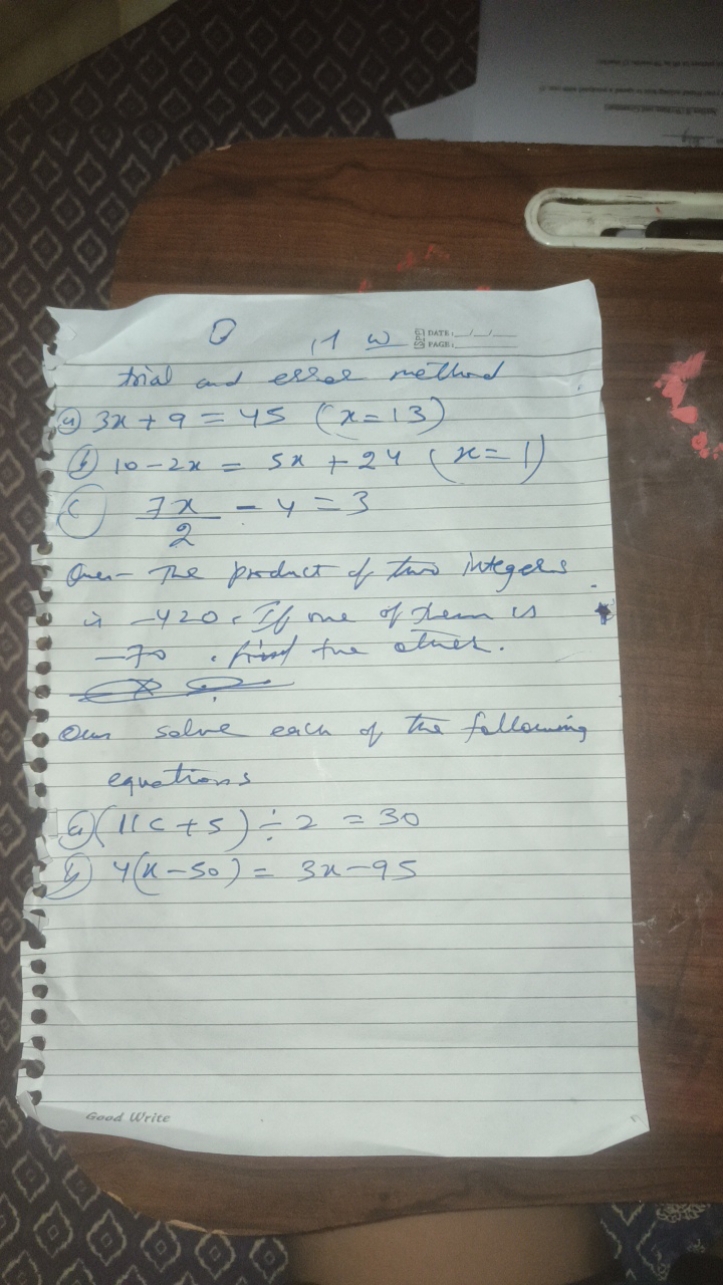 H W
DATE: __/__/__
PAGE:
trial and error method
a) 3x + 9 = 45 (x=13)
b) 10 - 2x = 5x + 24 (x=1)
c) 7x/2 - 4 = 3
Ques- The product of two integers
is -420. If one of them is
-70. find the other.
Ques solve each of the following
equations
a) (11c + 5) ÷ 2 = 30
b) 4(x-50) = 3x-95
Good Write